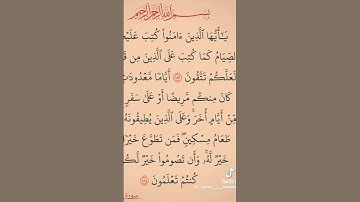 بِسْمِ ٱللَّهِ ٱلرَّحْمَٰنِ ٱلرَّحِيمِ
يَٰٓأَيُّهَا ٱلَّذِينَ ءَامَنُوا۟ كُتِبَ عَلَيْ
ٱلصِّيَامُ كَمَا كُتِبَ عَلَى ٱلَّذِينَ مِن قَ
لَعَلَّكُمْ تَتَّقُونَ ١٨٣ أَيَّامًا مَّعْدُودَٰتٍ
كَانَ مِنكُم مَّرِيضًا أَوْ عَلَىٰ سَفَرٍ
مِّنْ أَيَّامٍ أُخَرَ ۚ وَعَلَى ٱلَّذِينَ يُطِيقُونَهُۥ
طَعَامُ مِسْكِينٍ ۖ فَمَن تَطَوَّعَ خَيْرًا
خَيْرٌ لَّهُۥ ۚ وَأَن تَصُومُوا۟ خَيْرٌ لَّكُ
كُنتُمْ تَعْلَمُونَ ١٨٤
سورة